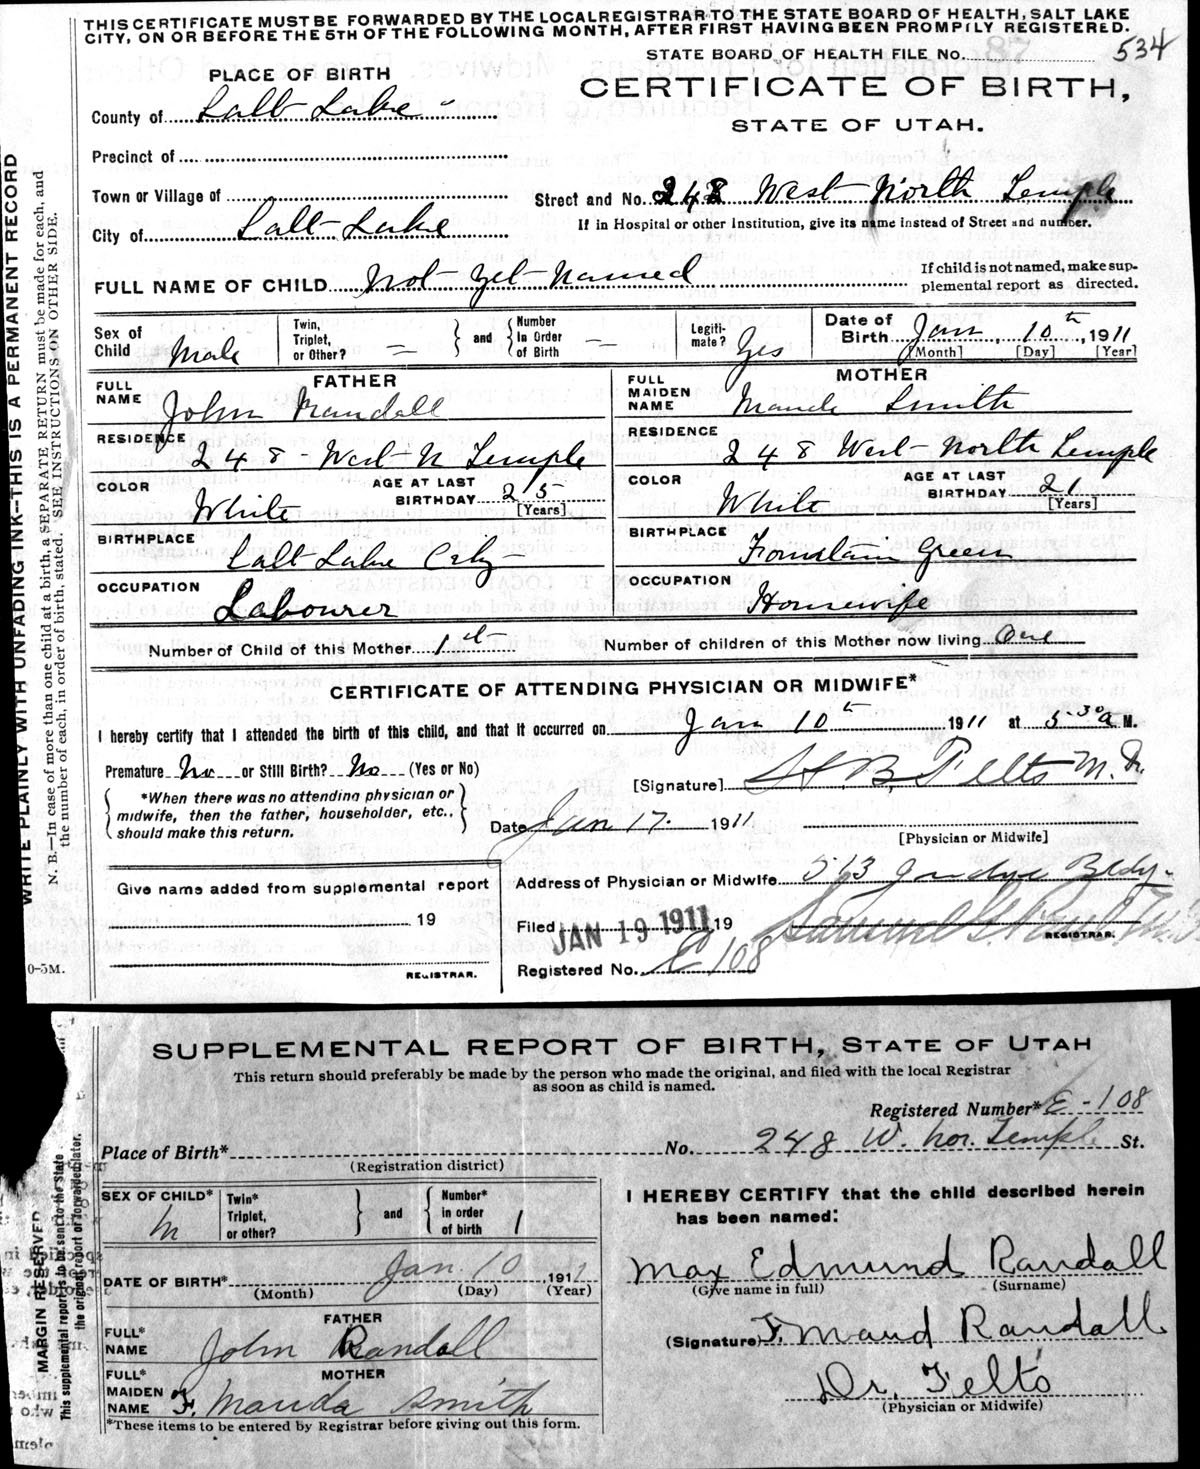 THIS CERTIFICATE MUST BE FORWARDED BY THE LOCAL REGISTRAR TO THE STATE BOARD OF HEALTH, SALT LAKE
CITY, ON OR BEFORE THE 5TH OF THE FOLLOWING MONTH, AFTER FIRST HAVING BEEN PROMPTLY REGISTERED.
STATE BOARD OF HEALTH FILE No. 534
PLACE OF BIRTH
CERTIFICATE OF BIRTH,
STATE OF UTAH.
County of Salt Lake
Precinct of
Town or Village of
Street and No. 248 West North Temple
City of Salt Lake
If in Hospital or other Institution, give its name instead of Street and number.
FULL NAME OF CHILD Not yet Named
If child is not named, make sup-
plemental report as directed.
Sex of Child Male
Twin, Triplet, or Other? =
and
Number In Order of Birth =
Legiti-mate? Yes
Date of Birth Jan. 10th, 1911
[Month] [Day] [Year]
FATHER
FULL NAME John Randall
RESIDENCE 248 - West N Temple
COLOR White
AGE AT LAST BIRTHDAY 25 [Years]
BIRTHPLACE Salt Lake City
OCCUPATION Labourer
MOTHER
FULL MAIDEN NAME Maude Smith
RESIDENCE 248 West North Temple
COLOR White
AGE AT LAST BIRTHDAY 21 [Years]
BIRTHPLACE Fountain Green
OCCUPATION Housewife
Number of Child of this Mother 1st
Number of children of this Mother now living One
CERTIFICATE OF ATTENDING PHYSICIAN OR MIDWIFE*
I hereby certify that I attended the birth of this child, and that it occurred on Jan 10th 1911 at 5-30 a M.
Premature No or Still Birth? No (Yes or No)
[Signature] H. B. Felts M.D.
*When there was no attending physician or
midwife, then the father, householder, etc.,
should make this return.
Date Jan 17. 1911
[Physician or Midwife]
Give name added from supplemental report
19
REGISTRAR.
Address of Physician or Midwife 513 Judge Bldg.
Filed JAN 19 1911 19
Samuel G. Paul M.D.
REGISTRAR.
Registered No. E 108
WRITE PLAINLY WITH UNFADING INK--THIS IS A PERMANENT RECORD
N. B.—In case of more than one child at a birth, a SEPARATE RETURN must be made for each, and
the number of each, in order of birth, stated. SEE INSTRUCTIONS ON OTHER SIDE.
0-5M.
SUPPLEMENTAL REPORT OF BIRTH, STATE OF UTAH
This return should preferably be made by the person who made the original, and filed with the local Registrar
as soon as child is named.
Registered Number* E-108
Place of Birth* No. 248 W. Nor. Temple St.
(Registration district)
SEX OF CHILD* M
Twin* Triplet, or other?
and
Number* in order of birth 1
DATE OF BIRTH* Jan 10, 1911
(Month) (Day) (Year)
FATHER
FULL* NAME John Randall
MOTHER
FULL* MAIDEN NAME F. Mauda Smith
*These items to be entered by Registrar before giving out this form.
I HEREBY CERTIFY that the child described herein
has been named:
Max Edmund Randall
(Give name in full) (Surname)
(Signature) F. Maud Randall
Dr. Felts
(Physician or Midwife)
MARGIN RESERVED
This supplemental report is to be sent to the State
the original report or forwarded later.